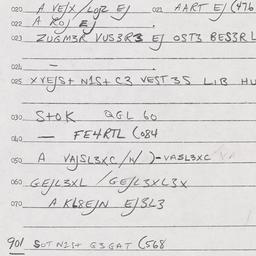 020 A VEJX /LOJ2 EJ 021 AART EJ (476
022 A ROJ EJ
023 ZUGM3R VUS3R3 EJ OST3 BES3R L
024 —
025 XYEJSt N1St C3 VEST3S LIB HU
030 StOK QGL 60
040 — FE4RTL (084
050 A VAJSL3XC /W/ )-VASL3XC
060 GEJL3XL /GEJL3XL3X
070 A KL8EJN EJSL3
901 SOT N2St G3GAT (568